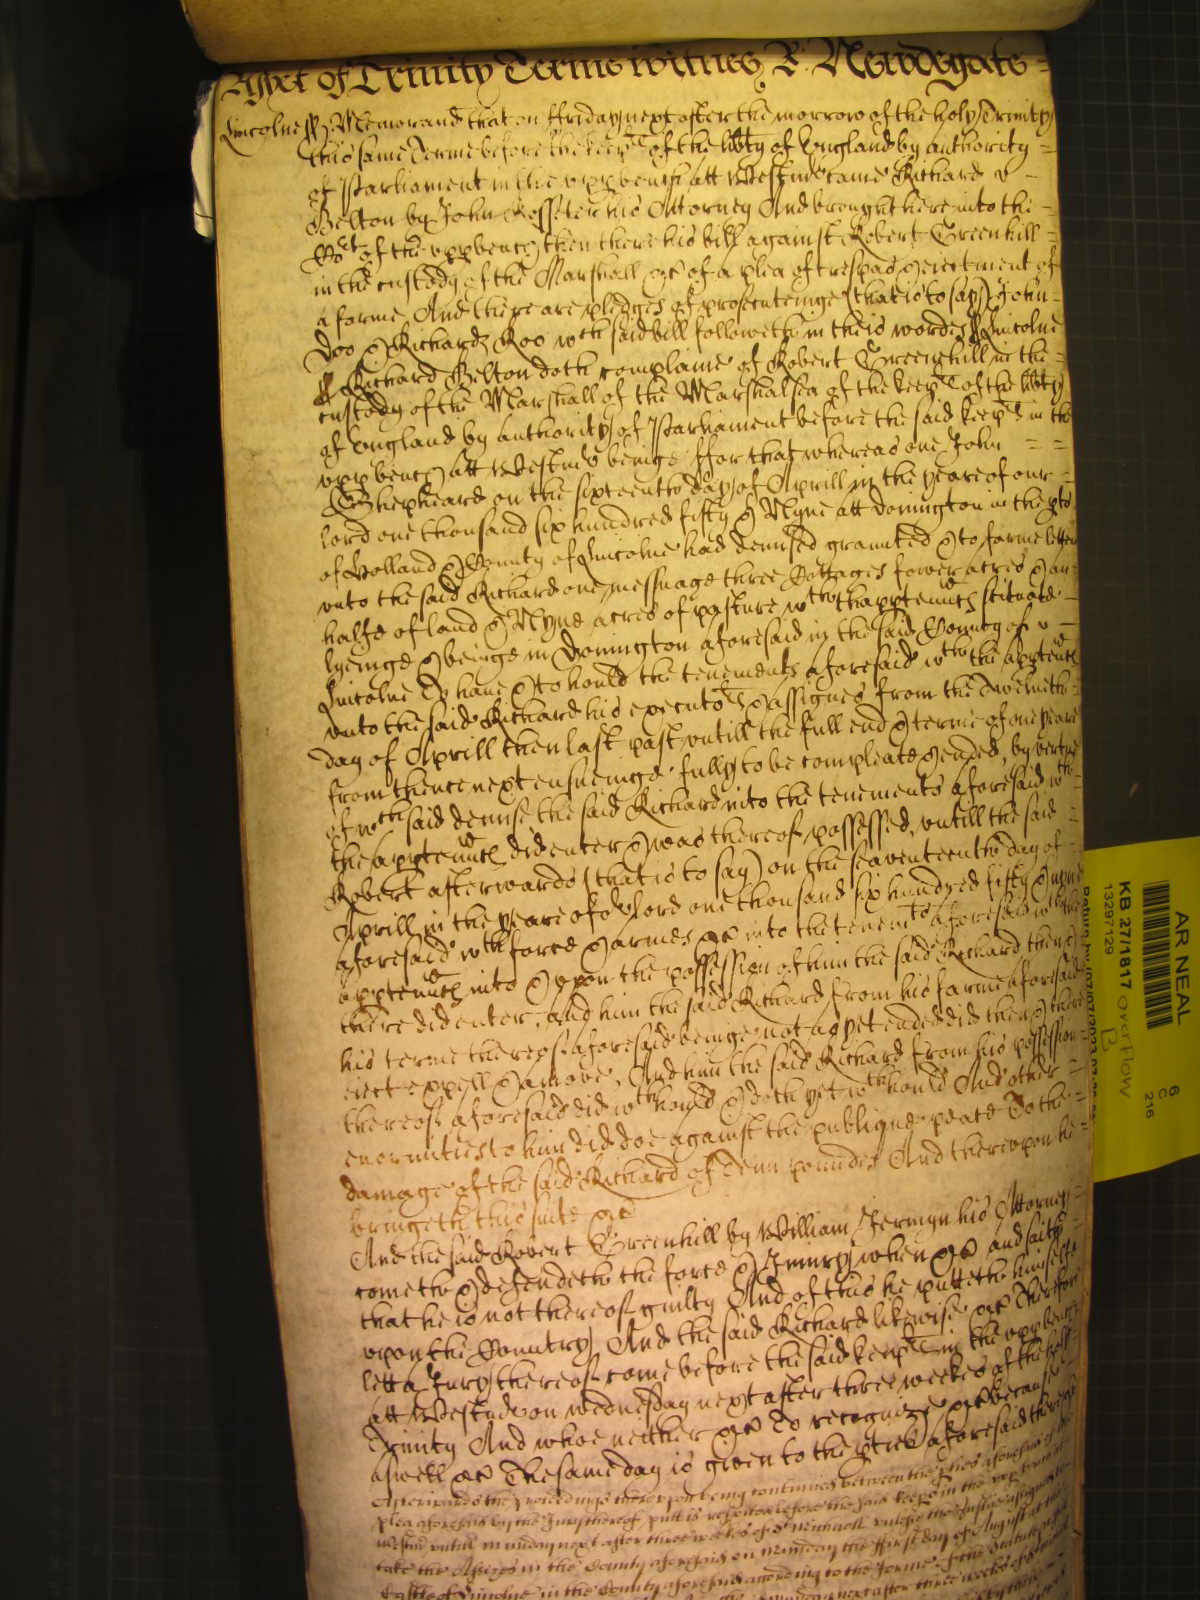 Yet of Trinity Terme witnes R: Newdegate
Lincolne ss Memorand that on ffriday next after the morrow of the holy Trinity
this same Terme before the keeprs of the libty of England by authority
of Parliament in the upp bench att Westmr came Richard
Belton by John Rosseter his Attorney And brought here into the
Court of the upp bench then there his bill against Robert Greenhill
in the custody of the Marshall &c of a plea of trespas & eiectment of
a farme And there are pledges of prosecuteinge (that is to say) John
Doo & Richard Roo wch said bill followeth in theis wordes ss Lincolne
ss Richard Belton doth complaine of Robert Greenhill in the
custody of the Marshall of the Marshalsea of the keeprs of the libty
of England by authority of Parliament before the said keeprs in the
upp bench att Westmr beinge ffor that whereas one John
Shepheard on the sixteenth day of Aprill in the yeare of our
lord one thousand six hundred fifty & Nyne att Donington in the pts
of Holland & County of Lincolne had demised graunted & to farme letten
unto the said Richard one messuage three Cottages fower acres & an
halfe of land & Nyne acres of pasture wth thapptenncs scituate
lyeinge & beinge in Donington aforesaid in the said County of
Lincolne To have & to hould the tenements aforesaid wth the apptenncs
unto the said Richard his executors & assignes from the Twelueth
day of Aprill then last past untill the full end & terme of one yeare
from thence next ensueinge fully to be compleate & ended, by vertue
of wch said demise the said Richard into the tenements aforesaid wth
the apptenncs did enter & was thereof possessed, untill the said
Robert afterwards (that is to say) on the seaventeenth day of
Aprill in the yeare of or lord one thousand six hundred fifty & nyne
aforesaid wth force & armes &c into the tenemts aforesaid wth the
apptenncs into & upon the possession of him the said Richard then &
there did enter, and him the said Richard from his farme aforesaid
his terme thereof aforesaid beinge not as yet ended did then & there
eiect expell & amove, And him the said Richard from his possession
thereof aforesaid did wthhould & doth yet wthhould And other
enormities to him did doe against the publique peace To the
damage of the said Richard of Tenn poundes And thereupon he
bringeth this suite &c
And the said Robert Greenhill by William Jermyn his Attorney
cometh & defendeth the force & Iniury when &c and saith
that he is not thereof guilty And of this he putteth himselfe
upon the Country, And the said Richard likewise &c Therefore
lett a Jury thereof come before the said keeprs in the upp bench
att Westmr on wednesday next after three weekes of the holy
Trinity And whoe neither &c To recognize &c because
aswell &c The same day is given to the pties aforesaid there &c
Afterwards the proceedings thereupon being continued betweene the pties aforesaid of the
plea aforesaid by the Jury thereof putt is respited before the said keeprs in the upp bench att
Westmr untill munday next after three weekes of St Michaell unlesse the Justices assigned to
take the Assizes in the County aforesaid on munday the ffirst day of August at the
Castle of Lincolne in the County aforesaid according to the forme of the Statute
munday next after three weekes of St Michaell
AR NEAL
6
C
216
KB 27/1817 overflow
B
13297129